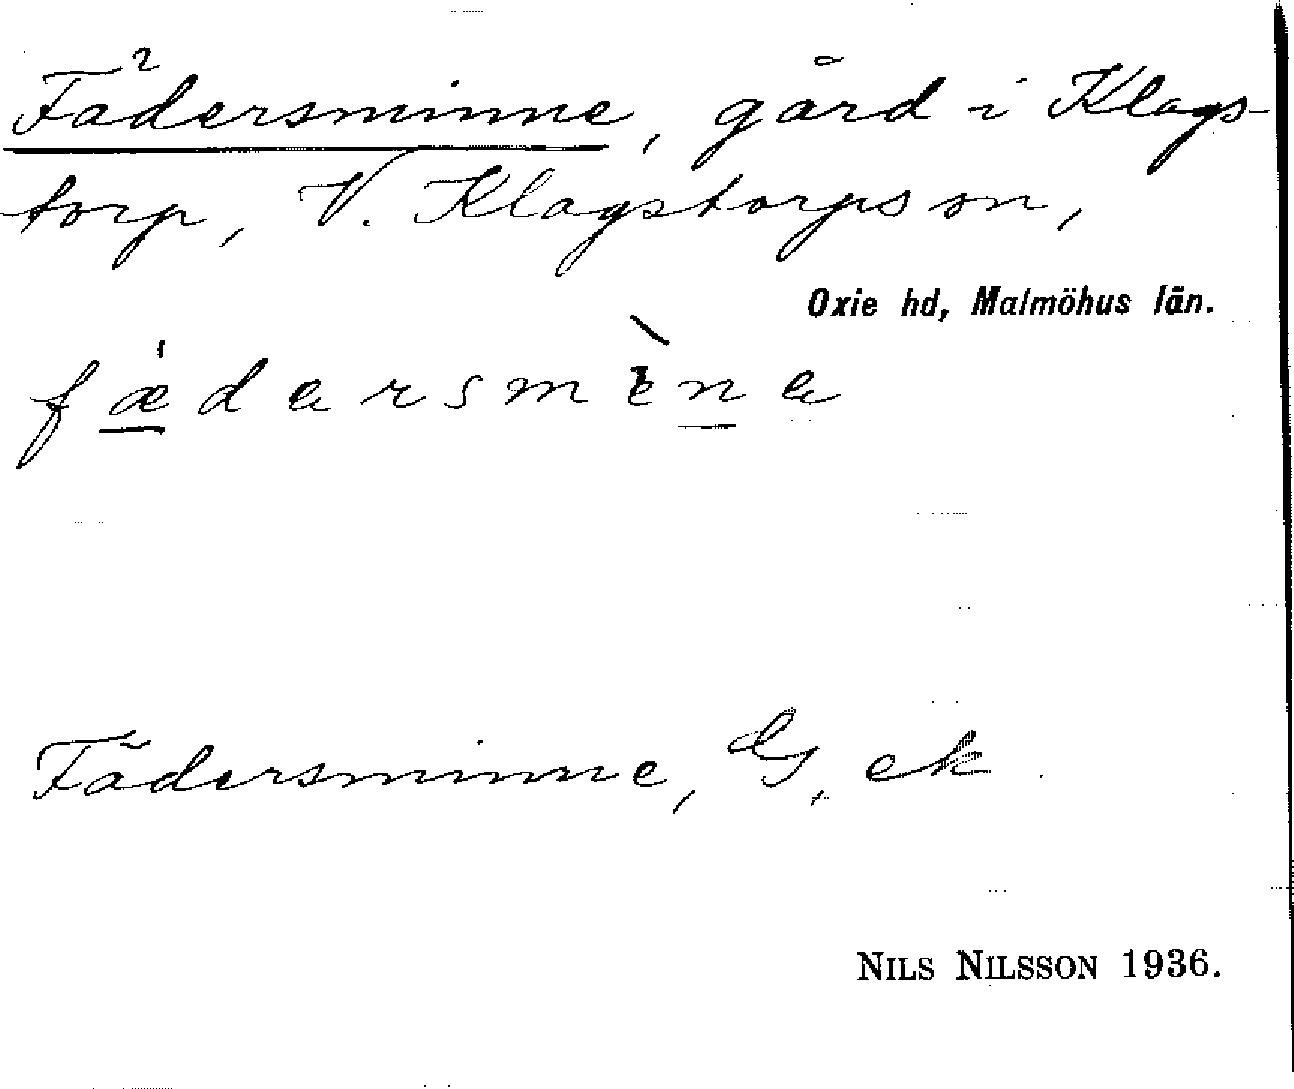 Fädersminne, gård i Klags-
torp, V. Klagstorps sn,
Oxie hd, Malmöhus län.
fǽdarsmèna
Fädersminne, G, ek
NILS NILSSON 1936.